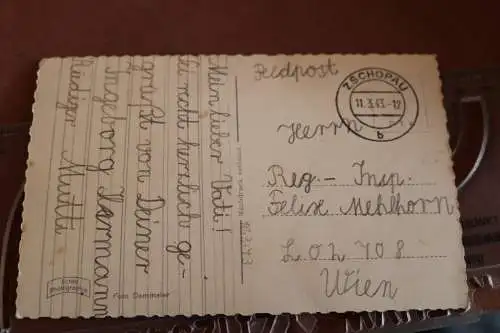 Mein lieber Vati!
Sei recht herzlich ge-
grüßt von Deiner
Ingeborg Hermann
Rüdiger Mutti.
Echte
Photographie
Foto Dammaler
Nachdruck verboten
Feldpost
ZSCHOPAU
11.3.43.-12
b
Herrn
Reg.- Insp.
Felix Mehlhorn
LGK 708
Wien